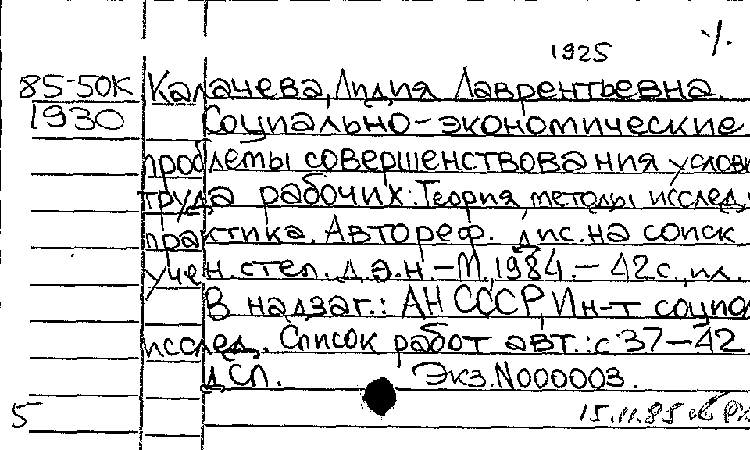 1925
85-50К Калачева, Лидия Лаврентьевна.
1930 Социально-экономические
проблемы совершенствования услови
труда рабочих: Теория, методы исслед.,
практика. Автореф. дис. на соиск.
учен. степ. д.э.н. - М., 1984. - 42 с., ил.
В надзаг.: АН СССР, Ин-т социо
исслед. Список работ авт.: с 37-42
ДСП. Экз. N000003.
5 15.11.85